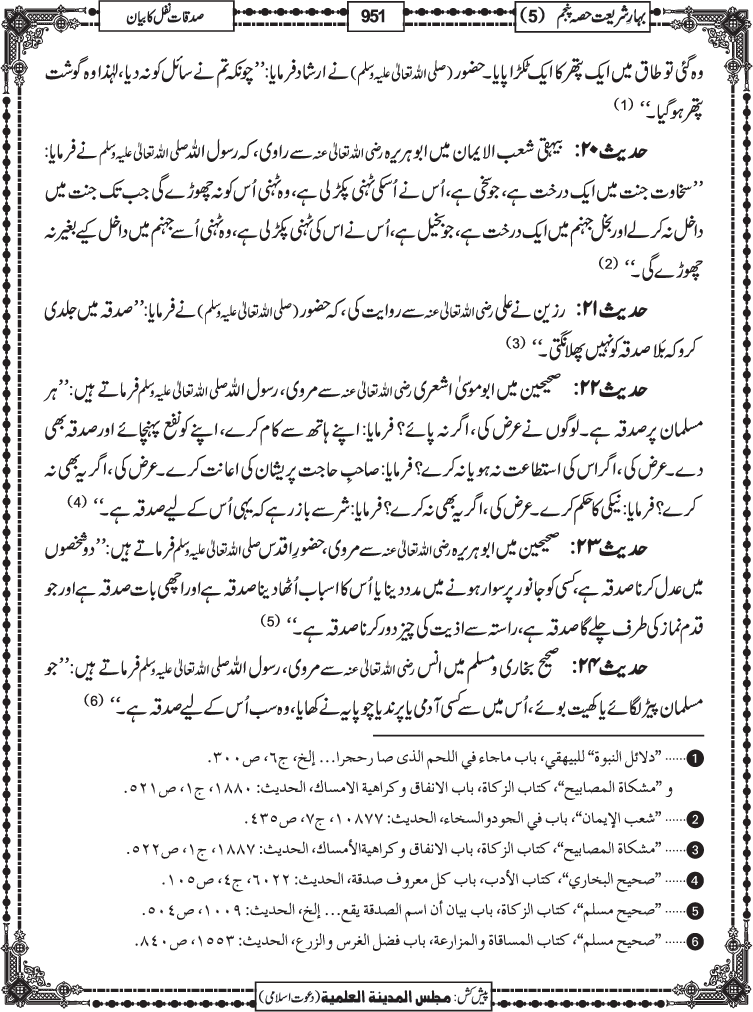 بہارِ شریعت حصہ پنجم (5)
951
صدقات نفل کا بیان
وہ گئی تو طاق میں ایک پتھر کا ایک ٹکڑا پایا۔ حضور (صلی اللہ تعالیٰ علیہ وسلم) نے ارشاد فرمایا: ’’چونکہ تم نے سائل کو نہ دیا، لہٰذا وہ گوشت
پتھر ہوگیا۔‘‘ (1)
حدیث ۲۰: بیہقی شعب الایمان میں ابوہریرہ رضی اللہ تعالیٰ عنہ سے راوی، کہ رسول اللہ صلی اللہ تعالیٰ علیہ وسلم نے فرمایا:
’’سخاوت جنت میں ایک درخت ہے، جو سخی ہے، اُس نے اُسکی ٹہنی پکڑ لی ہے، وہ ٹہنی اُس کو نہ چھوڑے گی جب تک جنت میں
داخل نہ کرلے اور بخل جہنم میں ایک درخت ہے، جو بخیل ہے، اُس نے اس کی ٹہنی پکڑ لی ہے، وہ ٹہنی اُسے جہنم میں داخل کیے بغیر نہ
چھوڑے گی۔‘‘ (2)
حدیث ۲۱: رزین نے علی رضی اللہ تعالیٰ عنہ سے روایت کی، کہ حضور (صلی اللہ تعالیٰ علیہ وسلم) نے فرمایا: ’’صدقہ میں جلدی
کرو کہ بَلا صدقہ کو نہیں پھلانگتی۔‘‘ (3)
حدیث ۲۲: صحیحین میں ابوموسیٰ اشعری رضی اللہ تعالیٰ عنہ سے مروی، رسول اللہ صلی اللہ تعالیٰ علیہ وسلم فرماتے ہیں: ’’ہر
مسلمان پر صدقہ ہے۔ لوگوں نے عرض کی، اگر نہ پائے؟ فرمایا: اپنے ہاتھ سے کام کرے، اپنے کو نفع پہنچائے اور صدقہ بھی
دے۔ عرض کی، اگر اس کی استطاعت نہ ہو یا نہ کرے؟ فرمایا: صاحبِ حاجت پریشان کی اعانت کرے۔ عرض کی، اگر یہ بھی نہ
کرے؟ فرمایا: نیکی کا حکم کرے۔ عرض کی، اگر یہ بھی نہ کرے؟ فرمایا: شر سے باز رہے کہ یہی اُس کے لیے صدقہ ہے۔‘‘ (4)
حدیث ۲۳: صحیحین میں ابوہریرہ رضی اللہ تعالیٰ عنہ سے مروی، حضورِ اقدس صلی اللہ تعالیٰ علیہ وسلم فرماتے ہیں: ’’دو شخصوں
میں عدل کرنا صدقہ ہے، کسی کو جانور پر سوار ہونے میں مدد دینا یا اُس کا اسباب اُٹھا دینا صدقہ ہے اور اچھی بات صدقہ ہے اور جو
قدم نماز کی طرف چلے گا صدقہ ہے، راستہ سے اذیت کی چیز دور کرنا صدقہ ہے۔‘‘ (5)
حدیث ۲۴: صحیح بخاری و مسلم میں انس رضی اللہ تعالیٰ عنہ سے مروی، رسول اللہ صلی اللہ تعالیٰ علیہ وسلم فرماتے ہیں: ’’جو
مسلمان پیڑ لگائے یا کھیت بوئے، اُس میں سے کسی آدمی یا پرند یا چوپایہ نے کھایا، وہ سب اُس کے لیے صدقہ ہے۔‘‘ (6)
1 ...... ”دلائل النبوة“ للبيهقي، باب ماجاء في اللحم الذى صا رحجرا... إلخ، ج٦، ص٣٠٠.
و ”مشكاة المصابيح“، كتاب الزكاة، باب الانفاق وكراهية الامساك، الحديث: ١٨٨٠، ج١، ص٥٢١.
2 ...... ”شعب الإيمان“، باب في الجودوالسخاء، الحديث: ١٠٨٧٧، ج٧، ص٤٣٥.
3 ...... ”مشكاة المصابيح“، كتاب الزكاة، باب الانفاق وكراهيةالأمساك، الحديث: ١٨٨٧، ج١، ص٥٢٢.
4 ...... ”صحيح البخاري“، كتاب الأدب، باب كل معروف صدقة، الحديث: ٦٠٢٢، ج٤، ص١٠٥.
5 ...... ”صحيح مسلم“، كتاب الزكاة، باب بيان أن اسم الصدقة يقع... إلخ، الحديث: ١٠٠٩، ص٥٠٤.
6 ...... ”صحيح مسلم“، كتاب المساقاة والمزارعة، باب فضل الغرس والزرع، الحديث: ١٥٥٣، ص٨٤٠.
پیش کش: مجلس المدينة العلمية (دعوت اسلامی)